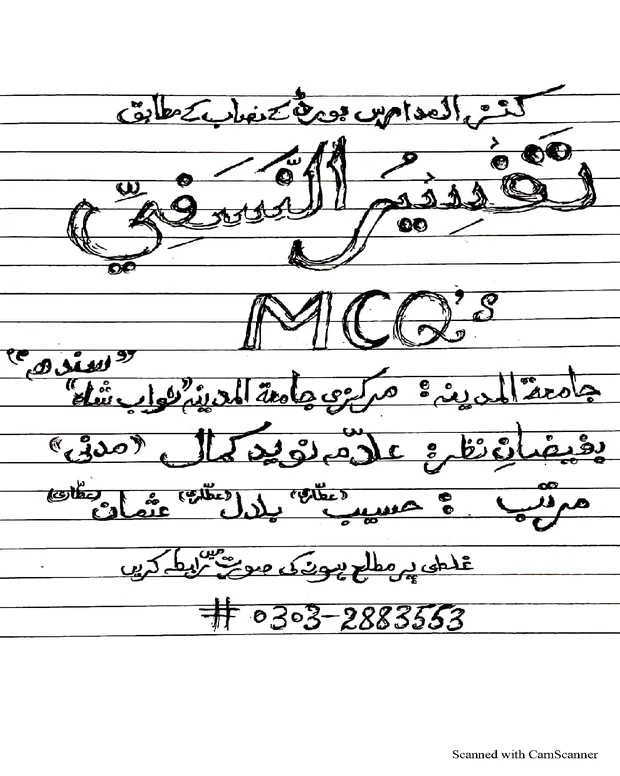 کنز المدارس بورڈ کے نصاب کے مطابق
تَفْسِیْرُ النَّسَفِیِّ
MCQ's
"سندھ"
جامعۃ المدینہ : مرکزی جامعۃ المدینہ "نواب شاہ"
بفیضانِ نظر : علامہ نوید کمال "مدنی"
مرتب : حسیب (عطاری) بلال (عطاری) عثمان (عطاری)
غلطی پر مطلع ہونے کی صورت میں رابطہ کریں
# 0303-2883553
Scanned with CamScanner